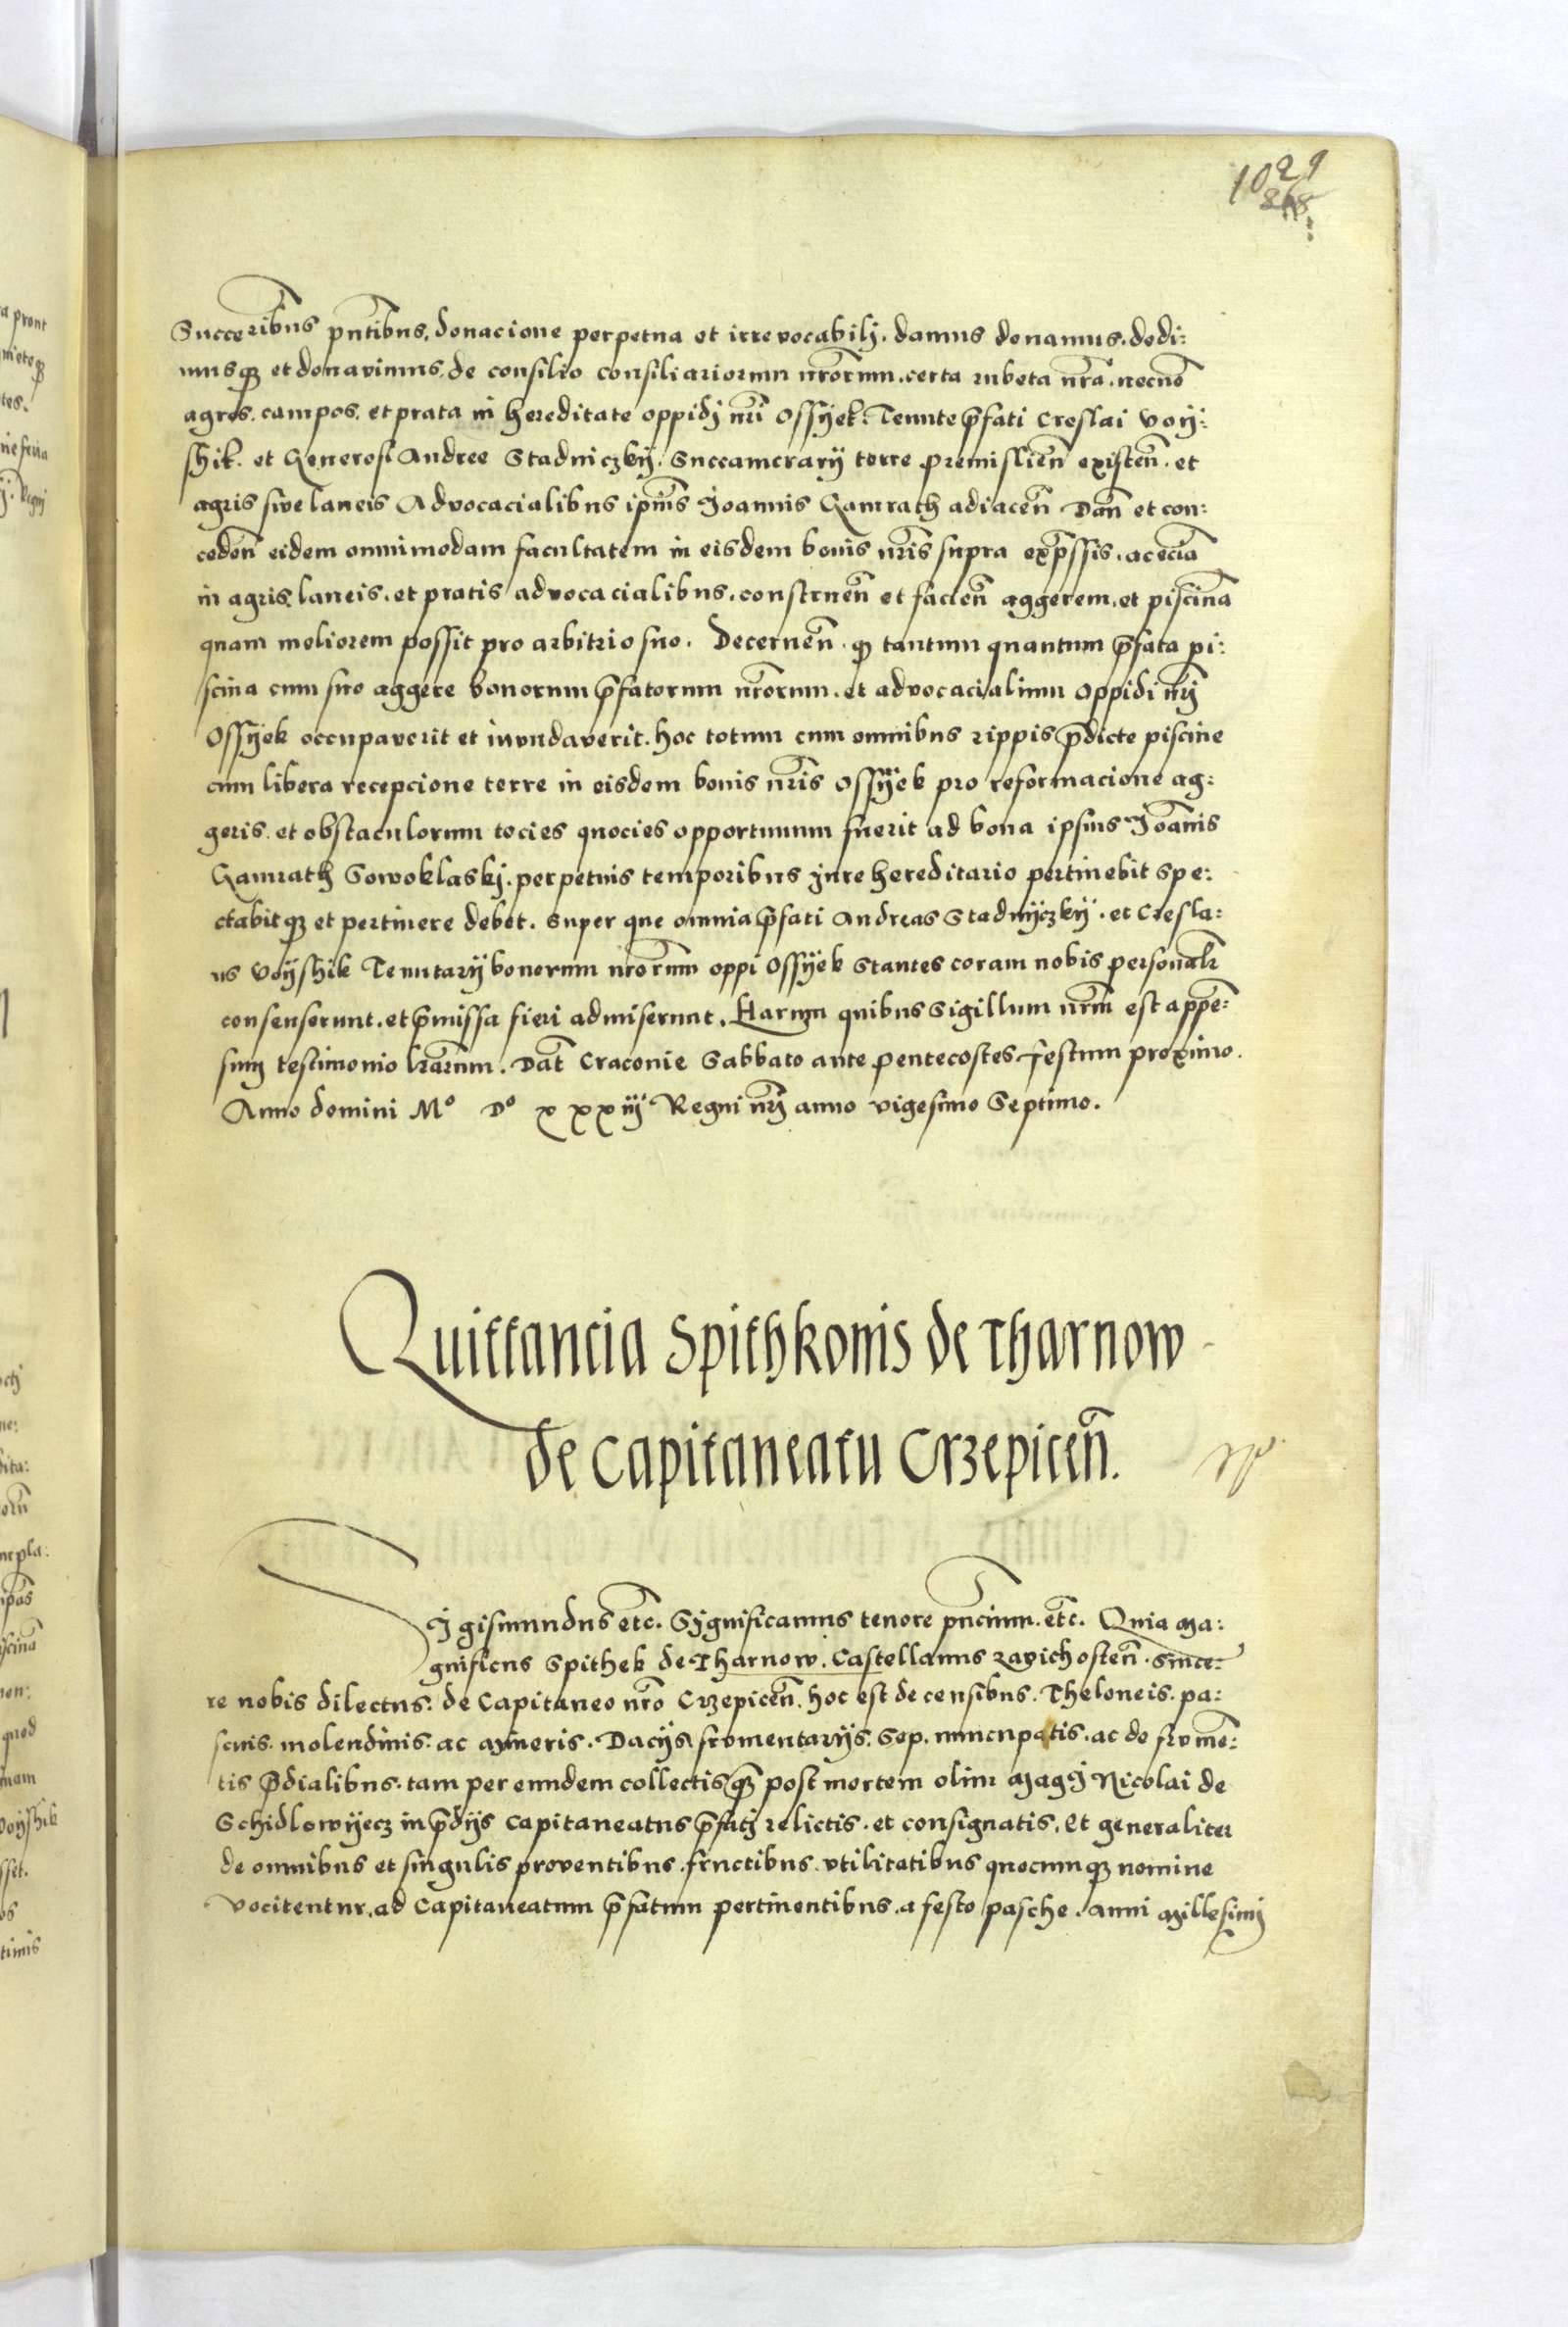 1029
268
Succeribus pntibus, donacione perpetua et irrevocabilj. damus donamus. dedi:
musqz et donavimus, de consilio consiliariorum nrorum. certa rubeta nra. necno
agros. campos. et prata in hereditate oppidj nri Ossyek. Tenute pfati Creslai Voy:
shik. et Generosi Andree Stadniczkij. Succamerarij terre premislien existen. et
agris sive laneis Advocacialibus ipius Joannis Gamrath adiacen Dan et con:
ceden eidem omnimodam facultatem in eisdem bonis nris supra expssis. ac ecia
in agris laneis. et pratis advocacialibus. construen et facien aggerem. et piscina
quam meliorem possit pro arbitrio suo. Decernen. qz tantum quantum pfata pi:
scina cum suo aggere bonorum pfatorum nrorum. et advocacialium oppidi nrj
Ossyek occupaverit et inundaverit. hoc totum cum omnibus rippis pdicte piscine
cum libera recepcione terre in eisdem bonis nris Ossyek pro reformacione ag:
geris. et obstaculorum tocies quocies opportunum fuerit ad bona ipsius Joanis
Gamrath Sowoklaskj. perpetuis temporibus jure hereditario pertinebit spe:
ctabitqz et pertinere debet. super que omnia pfati Andreas Stadnyczkij. et Cresla:
us Voyshik Tenutarij bonorum nrorum oppi Ossyek stantes coram nobis personalr
consenserunt. et pmissa fieri admiserunt. Harum quibus Sigillum nrm est appe:
sum testimonio lrarum. Dat Craconie Sabbato ante pentecostes festum proximo.
Anno domini Mo Do xxxiij Regni nrj anno vigesimo Septimo.
Quittancia Spithkonis de Tharnow
de Capitaneatu Crzepicen.
Sigismundus etc. Sygnificamus tenore pncium. etc. Quia Ma:
gnificus Spithek de Tharnow. Castellanus Zavichosten. Since:
re nobis dilectus. de Capitaneo nro Crzepicen. hoc est de censibus. Theloneis. pa:
scuis. molendinis. ac mineris. Dacijs frumentarijs. Sep. nuncupatis. ac de frume:
tis pdialibus. tam per eundem collectis qz post mortem olim Magci Nicolai de
Schidlowyecz in pdijs Capitaneatus pfatj relictis. et consignatis. Et generaliter
de omnibus et singulis proventibus. fructibus. utilitatibus quocumqz nomine
vocitentur. ad Capitaneatum pfatum pertinentibus. a festo pasche. anni Millesimi